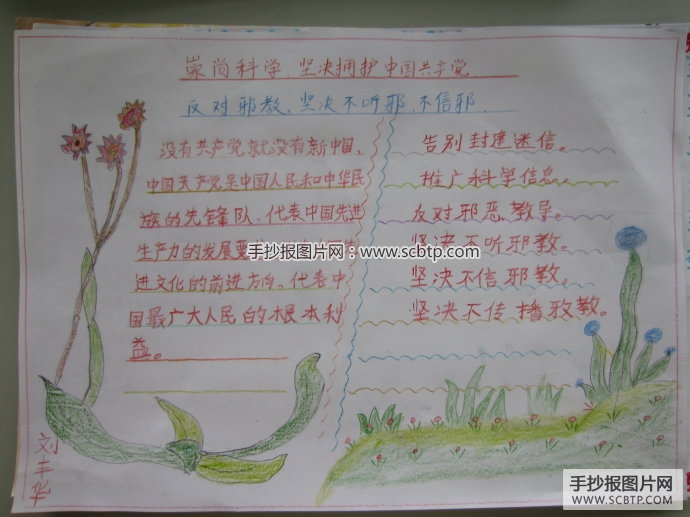 崇尚科学、坚决拥护中国共产党
反对邪教、坚决不听邪、不信邪
没有共产党就没有新中国、
中国共产党是中国人民和中华民
族的先锋队、代表中国先进
生产力的发展要
进文化的前进方向。代表中
国最广大人民的根本利
益。
告别封建迷信。
推广科学信息。
反对邪恶教导。
坚决不听邪教。
坚决不信邪教。
坚决不传播邪教。
手抄报图片网 www.scbtp.com
刘丰华
手抄报图片网
WWW.SCBTP.COM